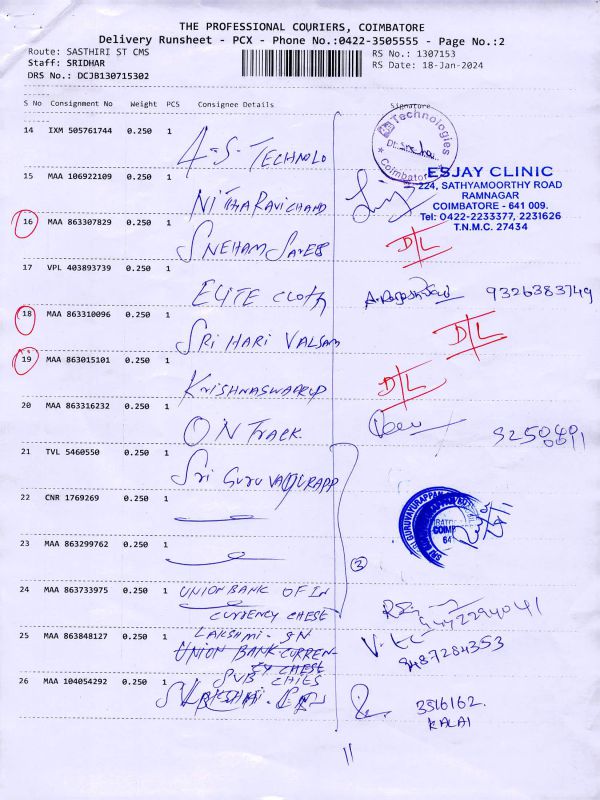 THE PROFESSIONAL COURIERS, COIMBATORE
Delivery Runsheet - PCX - Phone No.:0422-3505555 - Page No.:2
Route: SASTHIRI ST CMS RS No.: 1307153
Staff: SRIDHAR RS Date: 18-Jan-2024
DRS No.: DCJB130715302
S No Consignment No Weight PCS Consignee Details Signature
14 IXM 505761744 0.250 1
A-S-TECHNOLO
Technologies
Coimbatore
15 MAA 106922109 0.250 1
ESJAY CLINIC
224, SATHYAMOORTHY ROAD
RAMNAGAR
COIMBATORE - 641 009.
Tel: 0422-2233377, 2231626
T.N.M.C. 27434
NITHARAVICHAND
16 MAA 863307829 0.250 1
SNEHAM SALES D/L
17 VPL 403893739 0.250 1
ELITE CLOTH 9326383749
18 MAA 863310096 0.250 1
SRI HARI VALSAM D/L
19 MAA 863015101 0.250 1
KRISHNASWAROUP D/L
20 MAA 863316232 0.250 1
ON TRACK
21 TVL 5460550 0.250 1
SRI GURUVAYURAPP
22 CNR 1769269 0.250 1
SRI GURUVAYURAPPAN
23 MAA 863299762 0.250 1
3
24 MAA 863733975 0.250 1 UNION BANK OF IN
CURRENCY CHEST
9442294041
25 MAA 863848127 0.250 1 LAKSHMI-SN
UNION BANK CURREN
CY CHEST
9487284353
26 MAA 104054292 0.250 1
SVB CHIES
3516162.
KALAI
11